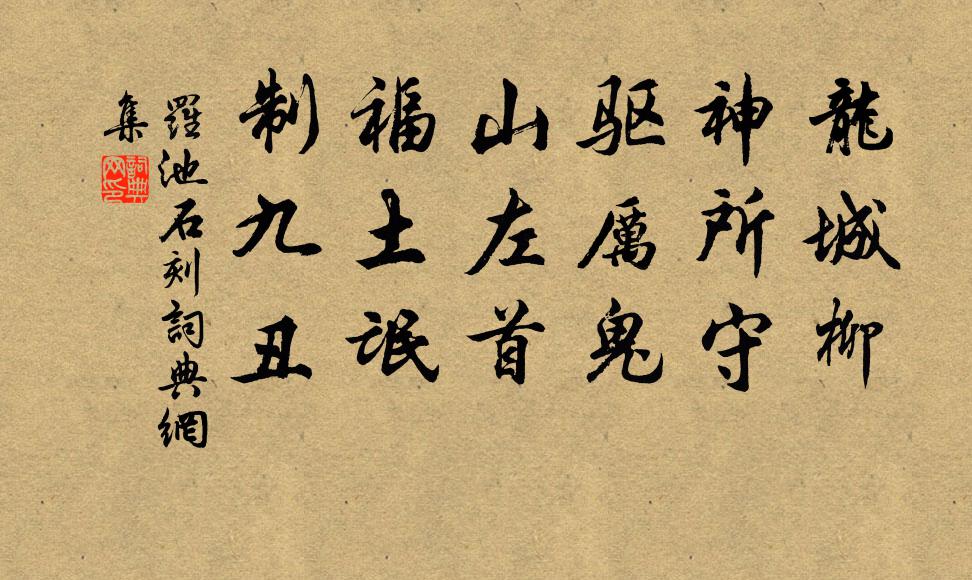 龍城柳
神所守
驱厲鬼
山左首
福土氓
制九丑
羅池石刻詞典網
集
詞典网印